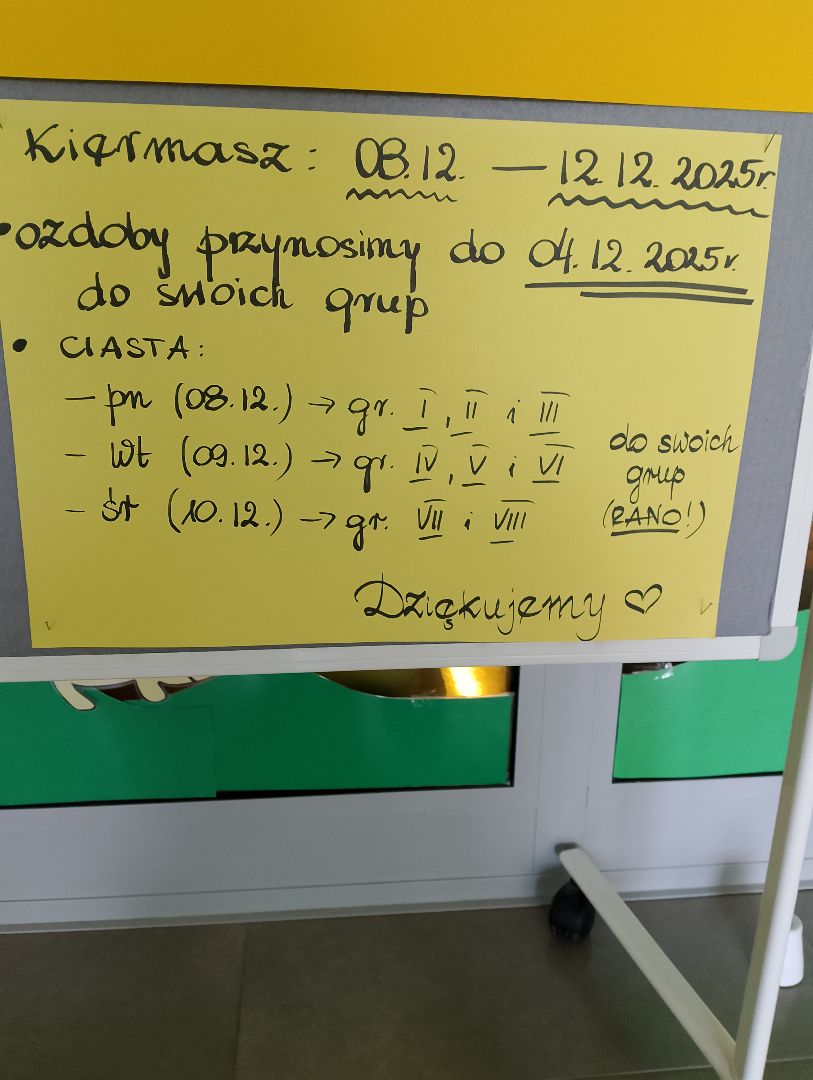 Kiermasz: 08.12. — 12.12.2025r.
• ozdoby przynosimy do 04.12.2025r.
do swoich grup
• CIASTA:
— pn (08.12.) → gr. I, II i III
— wt (09.12.) → gr. IV, V i VI
— śr (10.12.) → gr. VII i VIII
do swoich
grup
(RANO!)
Dziękujemy ♡